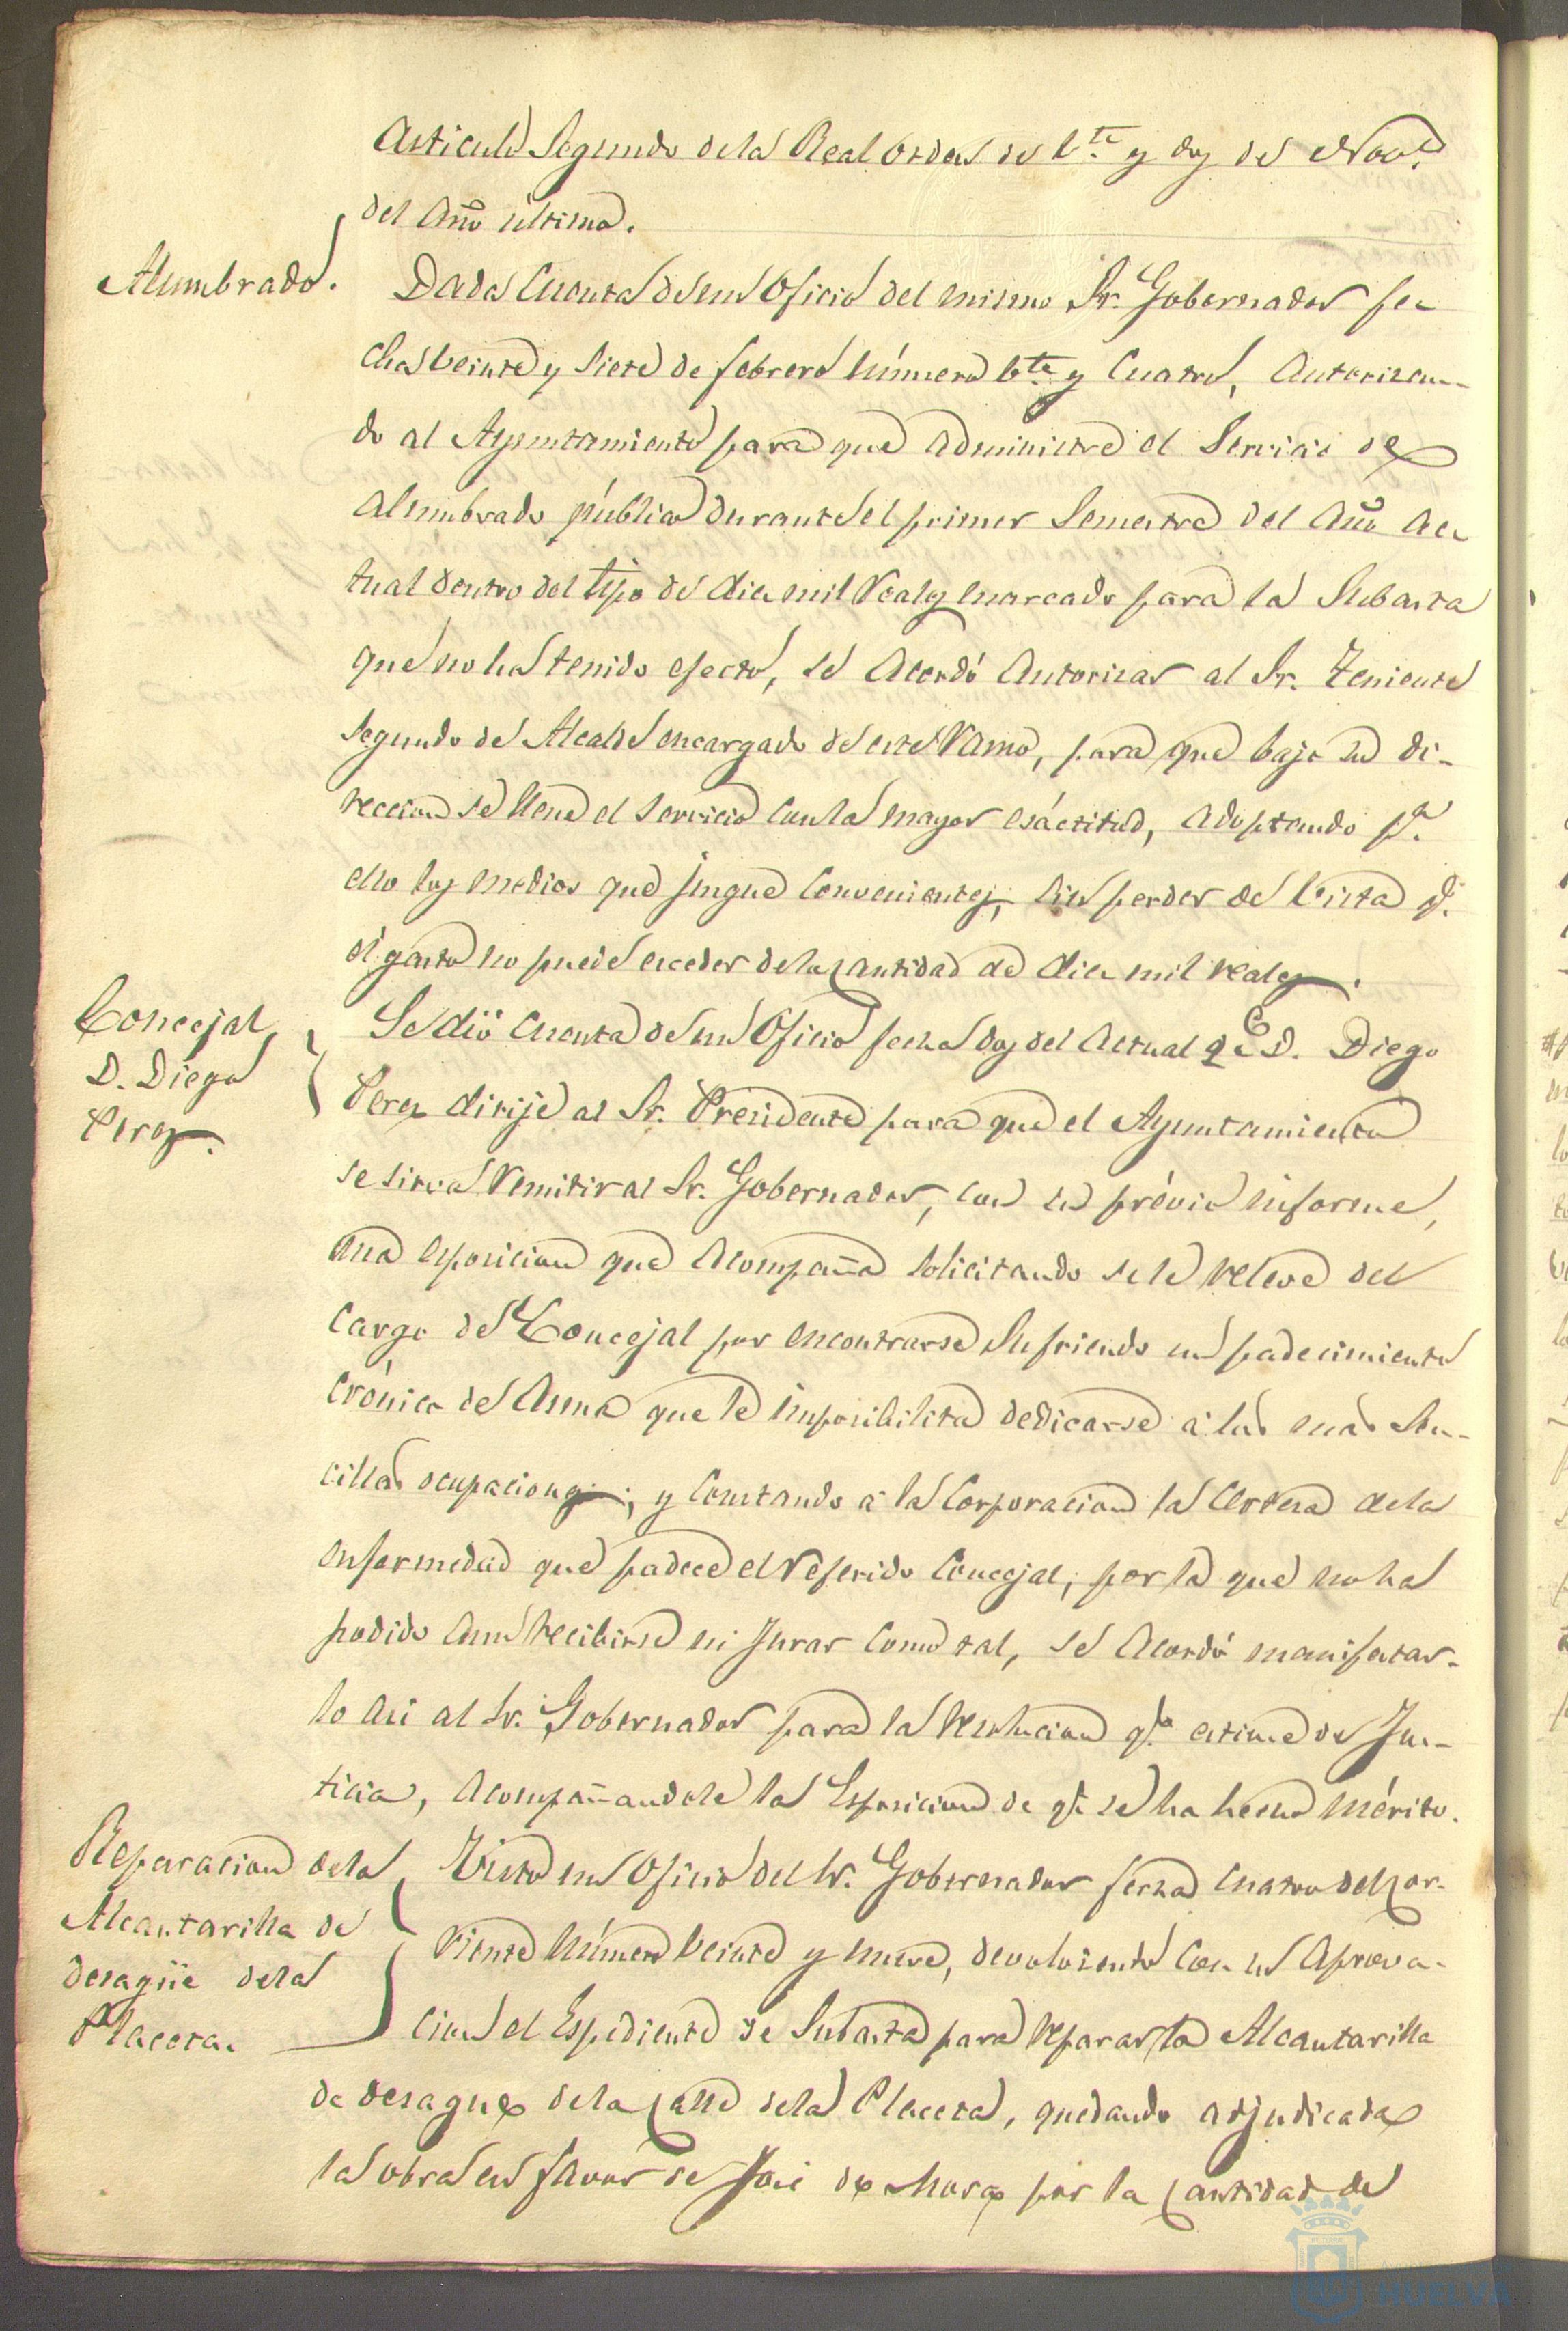 Articulo Segundo dela Real orden de Vte. y dos de Nove.
del Año último.
Alumbrado.
Dada Cuenta de un Oficio del mismo Sr. Gobernador fe-
cha veinte y siete de febrero número Vte. y Cuatro, Autorizan-
do al Ayuntamiento para que administre el Servicio de
Alumbrado público durante el primer Semestre del Año ac-
tual dentro del tipo de diez mil reales marcado para la Subasta
que no ha tenido efecto, se Acordó Autorizar al Sr. Teniente
Segundo de Alcalde encargado de este Ramo, para que bajo su di-
reccion se llene el Servicio con la mayor esáctitud, adoptando pa.
ello los medios que juzgue Convenientes, sin perder de Vista q.
el gasto no puede exceder dela Cantidad de diez mil reales.
Concejal
D. Diego
Perez.
Se dió Cuenta de un Oficio fecha dos del Actual q.e D. Diego
Perez dirije al Sr. Presidente para que el Ayuntamiento
se sirva remitir al Sr. Gobernador, con su prévio informe,
una esposicion que Acompaña solicitando se le releve del
Cargo de Concejal por encontrarse Sufriendo un padecimiento
Crónico de Asma que le imposibilita dedicarse á las mas Sen-
cillas ocupaciones; y Constando á la Corporacion la Certeza dela
enfermedad que padece el referido Concejal, por la que no ha
podido aun recibirse ni Jurar Como tal, se Acordó manifestar-
lo Asi al Sr. Gobernador para la resolucion q.e estime de Jus-
ticia, Acompañandole la Esposicion de q.e se ha hecho mérito.
Reparacion dela
Alcantarilla de
desagüe dela
Placeta.
Visto un Oficio del Sr. Gobernador fecha Cuatro del Cor-
riente número Veinte y nueve, devolviento Con su Aprova-
cion el Espediente de Subasta para reparar la Alcantarilla
de desague dela Calle dela Placeta, quedando adjudicada
la obra en favor de José de Mora por la Cantidad de
HUELVA